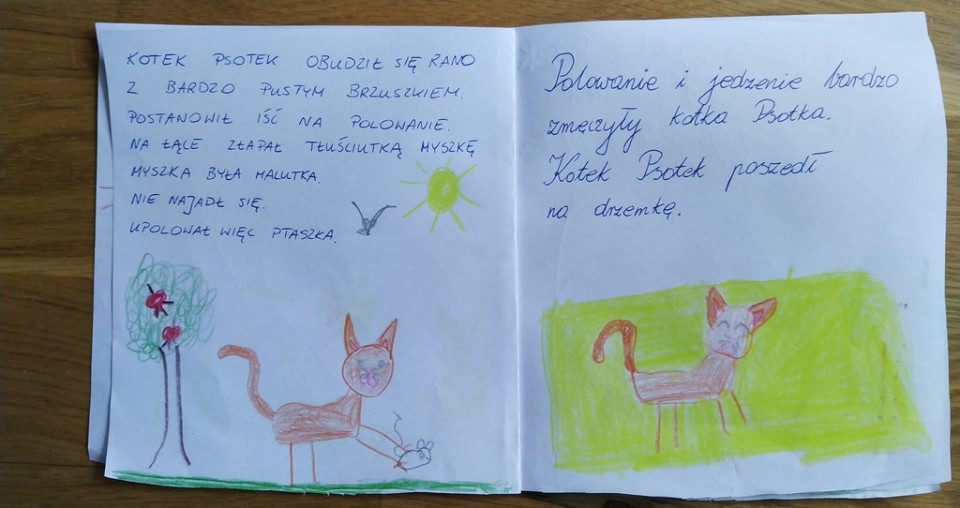 KOTEK PSOTEK OBUDZIŁ SIĘ RANO
Z BARDZO PUSTYM BRZUSZKIEM.
POSTANOWIŁ IŚĆ NA POLOWANIE.
NA ŁĄCE ZŁAPAŁ TŁUŚCIUTKĄ MYSZKĘ
MYSZKA BYŁA MALUTKA.
NIE NAJADŁ SIĘ.
UPOLOWAŁ WIĘC PTASZKA.
Polowanie i jedzenie bardzo
zmęczyły kotka Psotka.
Kotek Psotek poszedł
na drzemkę.